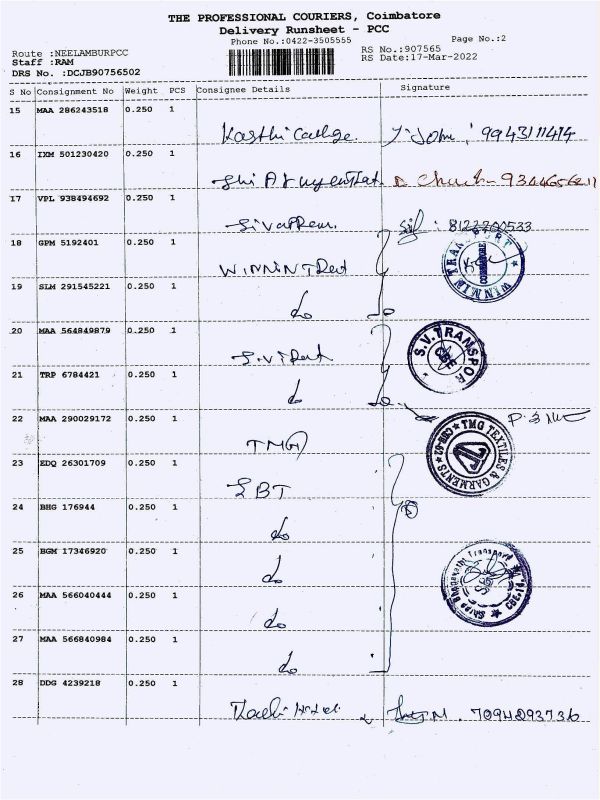 THE PROFESSIONAL COURIERS, Coimbatore
Delivery Runsheet - PCC
Phone No.:0422-3505555
Page No.:2
Route :NEELAMBURPCC
RS No.:907565
Staff :RAM
RS Date:17-Mar-2022
DRS No. :DCJB90756502
S No Consignment No Weight PCS Consignee Details Signature
15 MAA 286243518 0.250 1
9943111414
16 IXM 501230420 0.250 1
17 VPL 938494692 0.250 1
8122700533
18 GPM 5192401 0.250 1
WINNIN TRANSPORT
COIMBATORE
19 SLM 291545221 0.250 1
do
20 MAA 564849879 0.250 1
S.V.TRANSPOR
CBE
21 TRP 6784421 0.250 1
do
22 MAA 290029172 0.250 1
TMG
TMG TEXTILES & GARMENTS CBE-62
23 EDQ 26301709 0.250 1
SBT
24 BHG 176944 0.250 1
do
25 BGM 17346920 0.250 1
do
Transport
CBE-14
26 MAA 566040444 0.250 1
do
27 MAA 566840984 0.250 1
do
28 DDG 4239218 0.250 1
7094093736